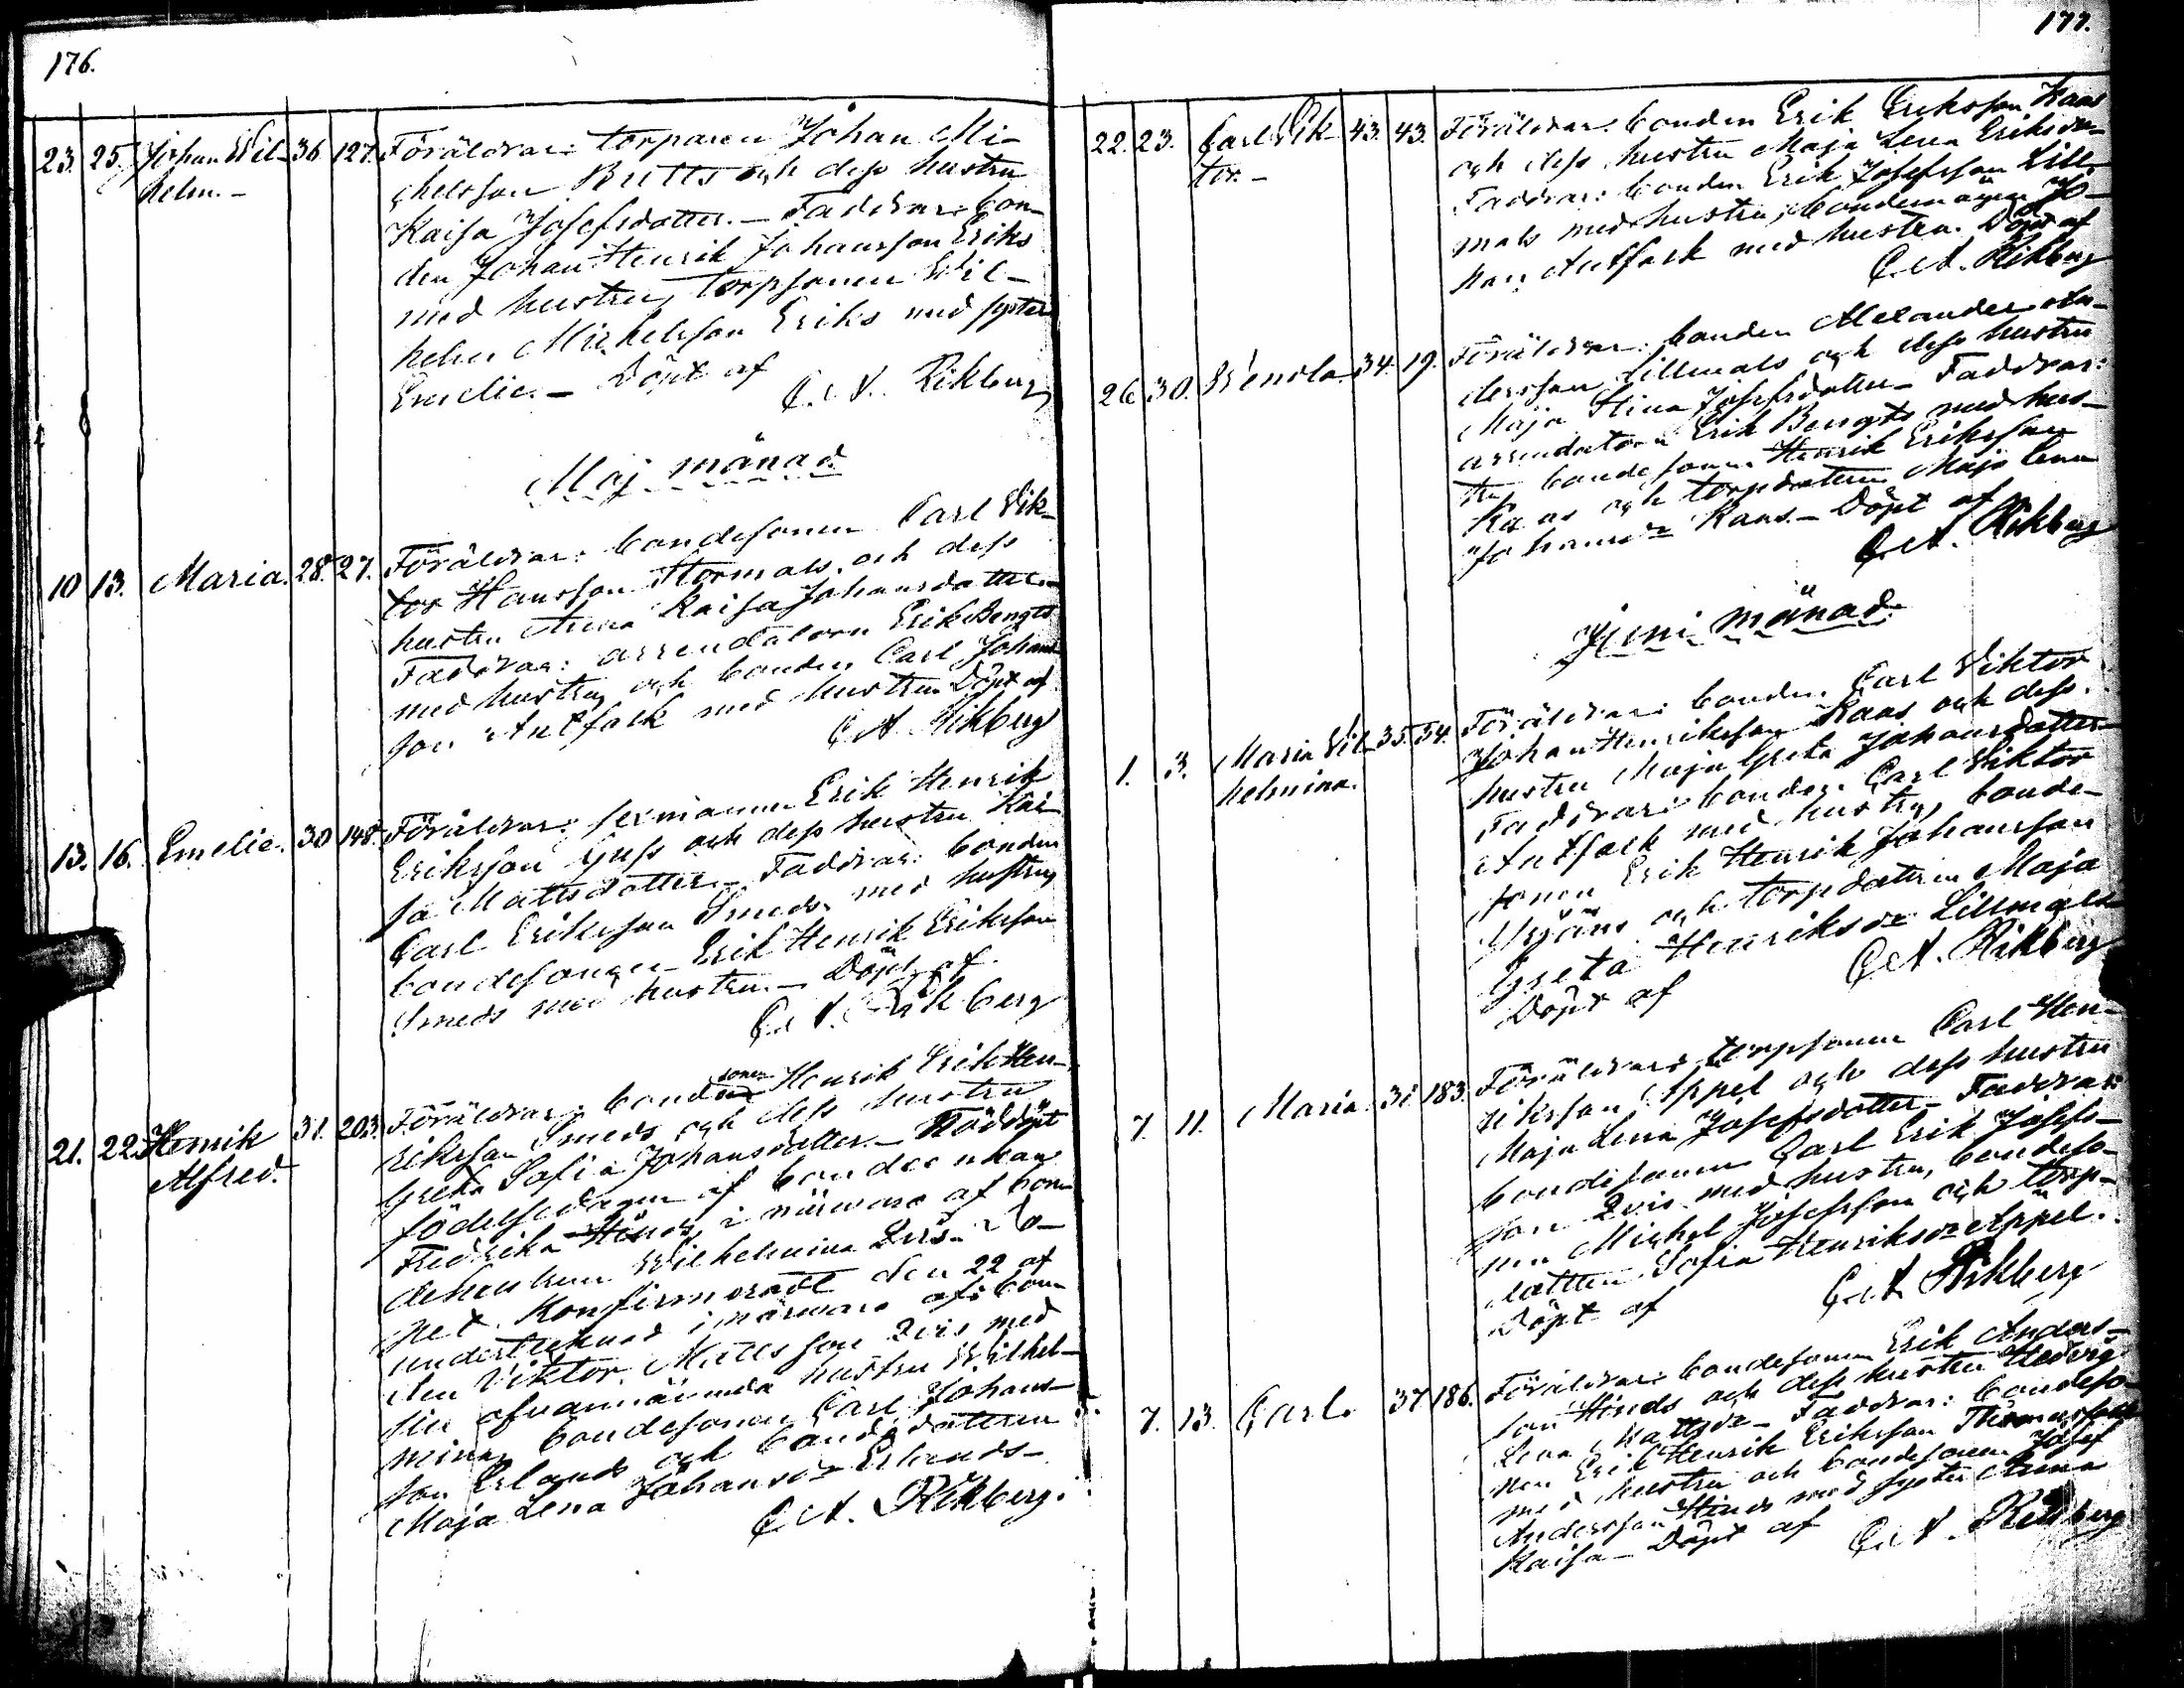 176.
23. 25. Johan Wil- 36 127. Föräldrar: torparen Johan Mi-
helm.- chelsson Butts och dess hustru
Kaisa Josefsdotter. – Faddrar: bon-
den Johan Henrik Johansson Eriks
med hustru, torpsonen Wil-
helm Michelsson Eriks med syster
Emelie. – Döpt af
C. A. Rikberg
Maj månad
10 13. Maria. 28. 27. Föräldrar: bondesonen Carl Vik-
tor Hansson Stormats och dess
hustru Anna Kaisa Johansdotter.
Faddrar: arrendatorn Erik Bengts
med hustru och bonden Carl Johans
son Antfolk med hustru Döpt af
C. A. Rikberg
13. 16. Emelie. 30 148. Föräldrar: sexmannen Erik Henrik
Eriksson Juss och dess hustru Kai
sa Mattsdotter. Faddrar: bonden
Carl Eriksson Smeds med hustru,
bondesonen Erik Henrik Eriksson
Smeds med hustru. – Döpt af
C. A. Rikberg
21. 22. Henrik 31. 203. Föräldrar: bondesonen Henrik Erik Hen-
Alfred. riksson Smeds och dess hustru
Greta Sofia Johansdotter. – Nöddöpt
födelsedagen af bondeenkan
Fredrika Hinds i närvaro af bon-
dehustrun Wilhelmina Qvis. Do-
pet konfirmeradt den 22 af
undertecknad i närvaro af: bon
den Viktor Mattsson Qvis med
sin ofvannämnda hustru Wilhel-
mina, bondesonen Carl Johans-
son Erlands och bondedottern
Maja Lena Johansdr Erlands –
C. A. Rikberg.
177.
22. 23. Carl Vik- 43. 43. Föräldrar: bonden Erik Eriksson Kaas
tor. – och dess hustru Maja Lena Eriksdr-
Faddrar: bonden Erik Josefsson Lill-
mats med hustru, bondemågen Jo-
han Antfolk med hustru. Döpt af
C. A. Rikberg
26 30. Wendla. 34. 19. Föräldrar: bonden Alexander An-
dersson Lillmats och dess hustru
Maja Stina Josefsdotter – Faddrar:
arrendatorn Erik Bengts med hus-
tru bondesonen Henrik Eriksson
Kaas och torpdottern Maja Lena
Johansdr Kaas. – Döpt af
C. A. Rikberg
Juni månad.
1. 3. Maria Vil- 35. 34. Föräldrar: bonden Carl Viktor
helmina. Johan Henriksson Kaas och dess
hustru Maja Greta Johansdotter
Faddrar: bonden Carl Viktor
Antfolk med hustru, bonde-
sonen Erik Henrik Johansson
och torpdottern Maja
Greta Henriksdr Lillmats
Döpt af C. A. Rikberg
7. 11. Maria 31 183. Föräldrar: torpsonen Carl Hen-
riksson Appel och dess hustru
Maja Lena Josefsdotter – Faddrar:
bondesonen Carl Erik Josefs-
son Qvis med hustru, bondeso-
nen Michel Josefsson och torp-
dottern Sofia Henriksdr Appel.
Döpt af C. A. Rikberg
7. 13. Carl. 37 186. Föräldrar: bondesonen Erik Anders-
son Hinds och dess hustru Hedvig
Lena Mattsdr – Faddrar: bondeso-
nen Erik Henrik Eriksson
med hustru och bondesonen Josef
Andersson Hinds med syster Anna
Kaisa – Döpt af C. A. Rikberg